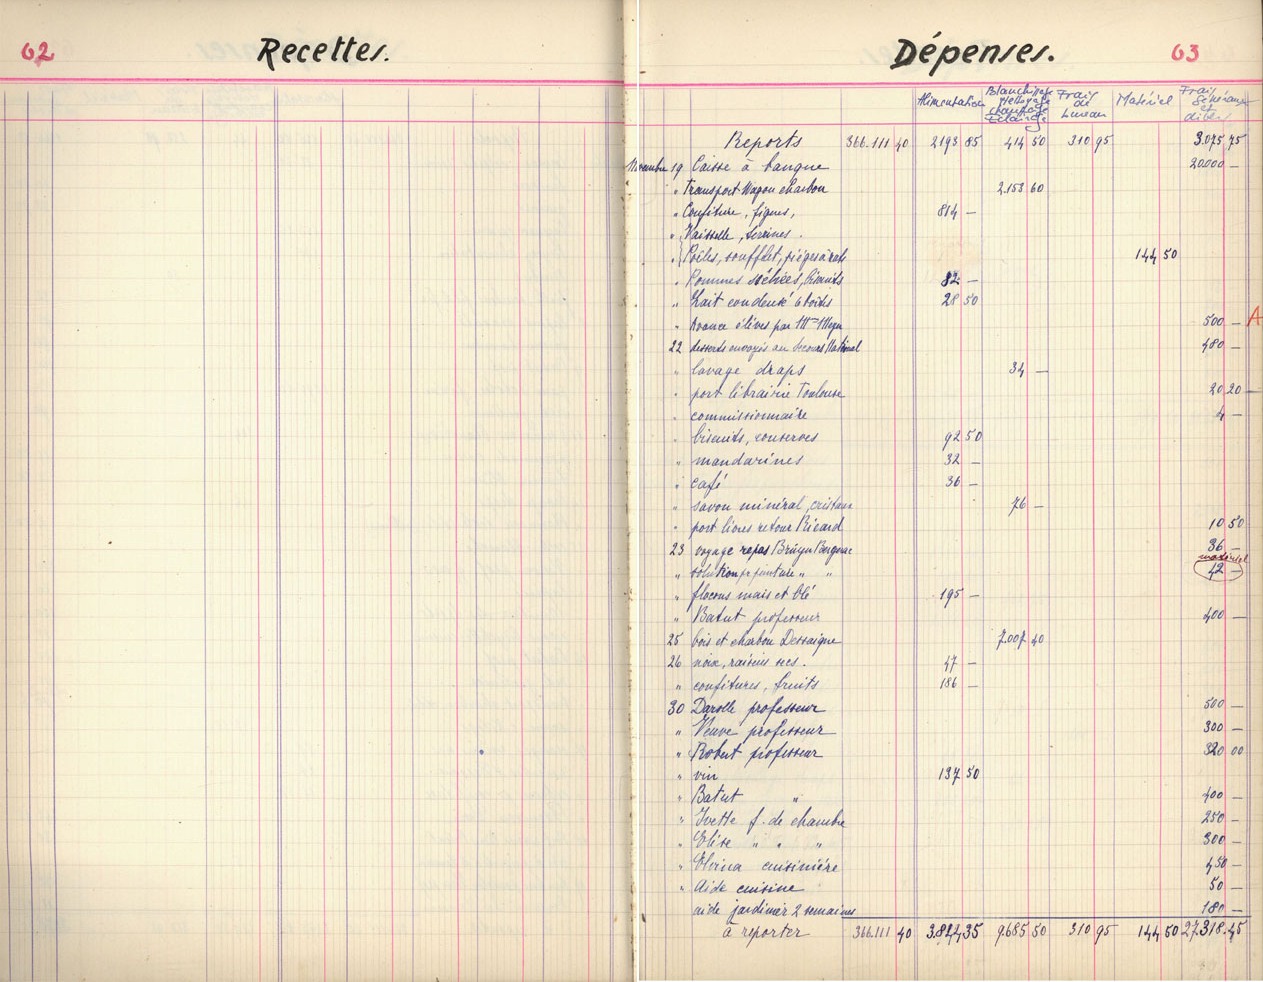 62 Recettes.
Dépenses. 63
Alimentation Blanchissage Nettoyage Chauffage Eclairage Frais de bureau Matériel Frais Généraux et divers
Reports 366.111 40 2193 85 414 50 310 95 3.075 75
Novembre 19 Caisse à banque 20000 —
" Transport Wagon charbon 2.153 60
" Confiture, figues, 814 —
" Vaisselle, terrines.
" Poêles, soufflet, pièges à rats 144 50
" Pommes séchées, biscuits 82 —
" Lait condensé 6 boîtes 28 50
" Avance élèves par Mme 500 — A
22 desserts envoyés au Secours National 480 —
" lavage draps 34 —
" port librairie Toulouse 20 20 —
" commissionnaire 4 —
" biscuits, conserves 92 50
" mandarines 32 —
" café 36 —
" savon minéral, cristaux 76 —
" port livres retour Ricard 10 50
23 voyage repas Bruyn Bergerac 36 —
matériel
" solution pr peinture " " 42 —
" flocons maïs et blé 195 —
" Batut professeur 400 —
25 bois et charbon Dessaigne 7.007 40
26 noix, raisins secs. 47 —
" confitures, fruits 186 —
30 Darolle professeur 500 —
" Veuve professeur 300 —
" Robert professeur 320 00
" vin 137 50
" Batut " 400 —
" Yvette f. de chambre 250 —
" Elise " " " 300 —
" Elvira cuisinière 450 —
" Aide cuisine 50 —
aide jardinier 2 semaines 180 —
à reporter 366.111 40 3.844,35 9.685 50 310 95 144 50 27.318.45